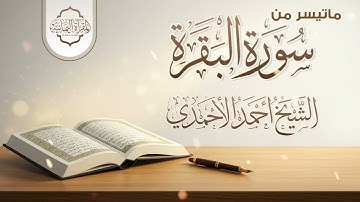 ماتيسر من
سُورَة البَقَرَة
الشيخ أحمد الأحمدي